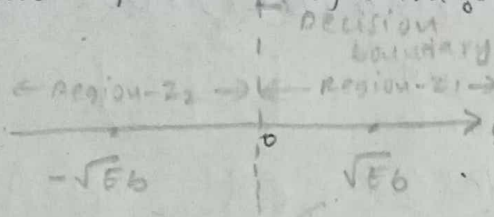 Decision
boundary
Region-Z2 Region-Z1
0
-√Eb √Eb